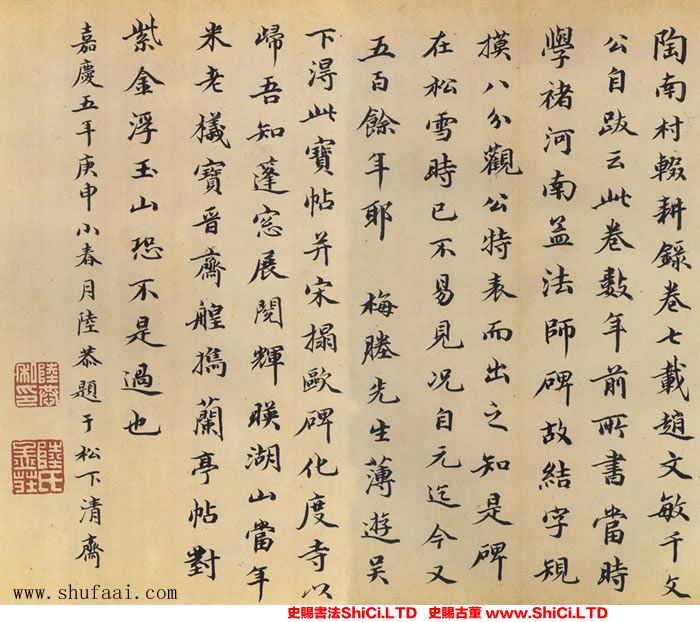 陶南村輟耕錄卷七載趙文敏千文
公自跋云此卷數年前所書當時
學褚河南孟法師碑故結字規
摸八分觀公特表而出之知是碑
在松雪時已不易見況自元迄今又
五百餘年耶 梅塍先生薄遊吴
下得此寶帖并宋搨歐碑化度寺以
歸吾知蓬窓展閱輝暎湖山當年
米老檥寶晉齋艎撝蘭亭帖對
紫金浮玉山恐不是過也
嘉慶五年庚申小春月陸恭題于松下清齋
陸恭
私印
陸氏
www.shufaai.com
史賜書法ShiCi.LTD 史賜古董 www.ShiCi.LTD